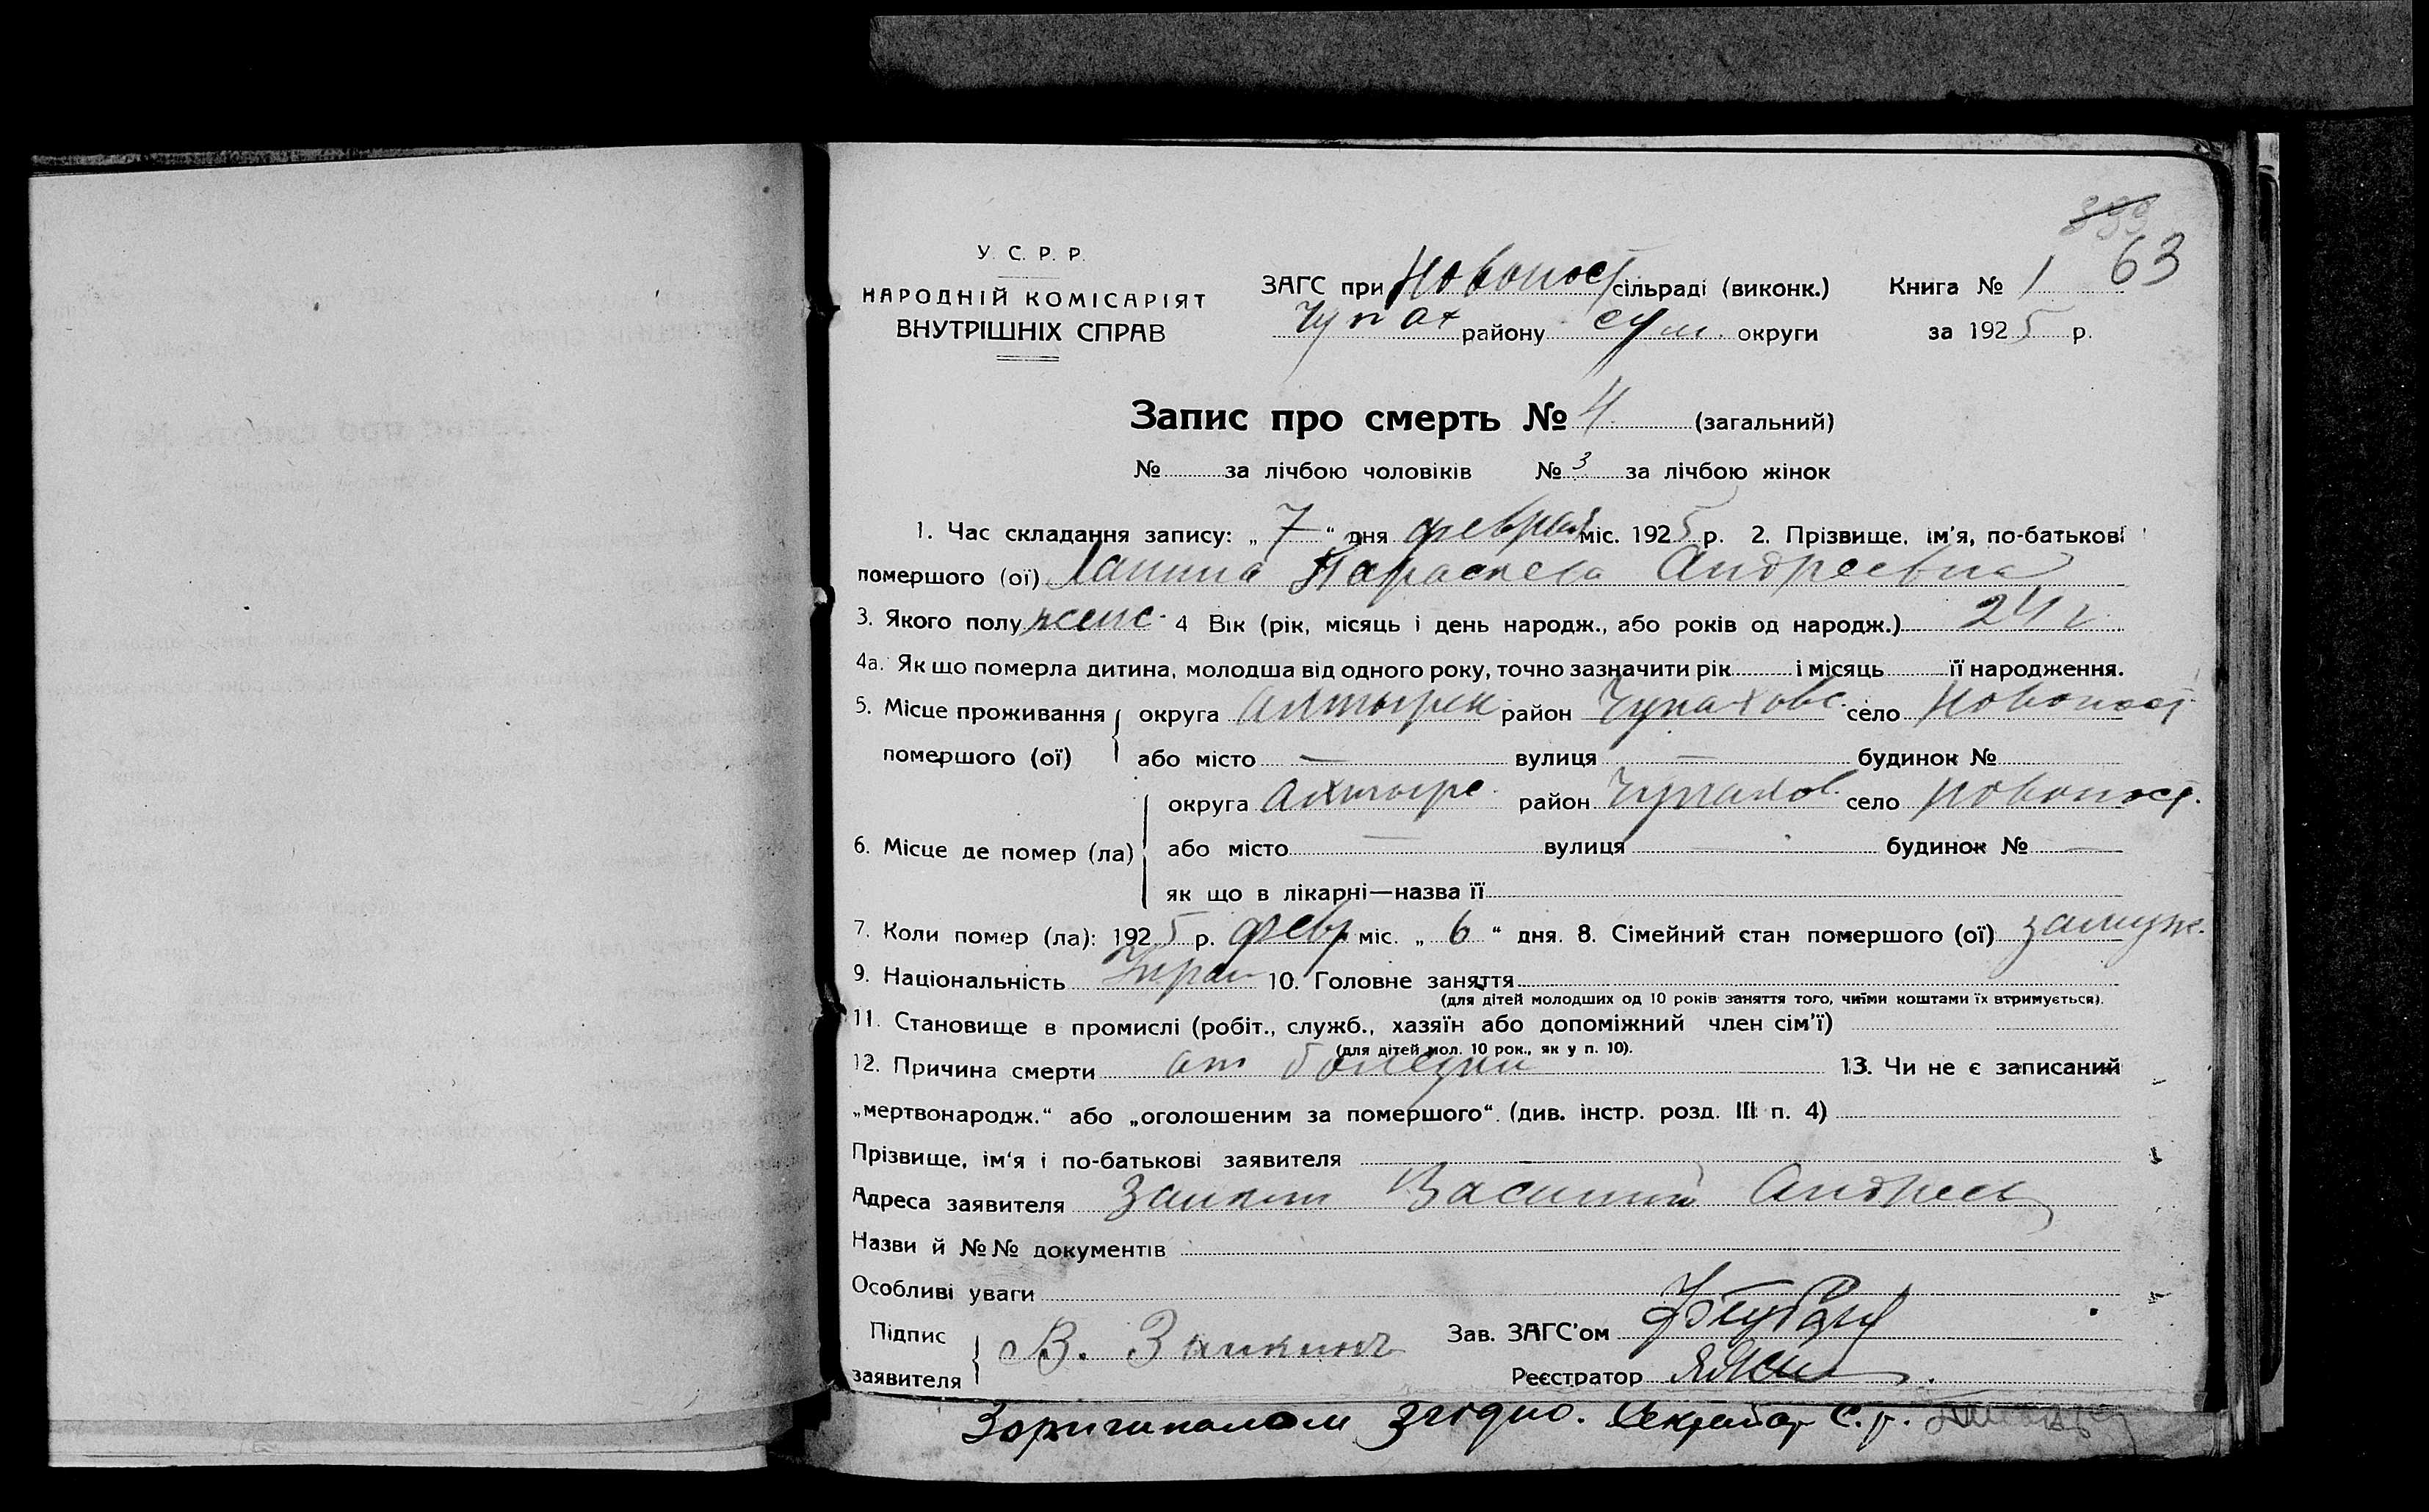 399
63
У. С. Р. Р.
НАРОДНІЙ КОМІСАРІЯТ
ВНУТРІШНІХ СПРАВ
ЗАГС при Новопост сільраді (виконк.) Книга № 1
Чупах району Сум. округи за 1925 р.
Запис про смерть № 4 (загальний)
№ за лічбою чоловіків № 3 за лічбою жінок
1. Час складання запису: „ 7 “ дня февраля міс. 1925 р. 2. Прізвище, ім'я, по-батькові
помершого (ої) Параскева Андреевна
3. Якого полу женс. 4 Вік (рік, місяць і день народж., або років од народж.) 24 г.
4а. Як що померла дитина, молодша від одного року, точно зазначити рік і місяць її народження.
5. Місце проживання округа Ахтырск район Чупаховс. село Новопост.
помершого (ої) або місто — вулиця — будинок №
округа Ахтырс. район Чупахов. село Новопост.
6. Місце де помер (ла) або місто — вулиця — будинок № —
як що в лікарні—назва її
7. Коли помер (ла): 1925 р. февр міс. „ 6 “ дня. 8. Сімейний стан помершого (ої) замуж.
9. Національність Украин 10. Головне заняття
(для дітей молодших од 10 років заняття того, чиїми коштами їх втримується).
11. Становище в промислі (робіт., служб., хазяїн або допоміжний член сім'ї)
(для дітей мол. 10 рок., як у п. 10).
12. Причина смерти от болезни 13. Чи не є записаний
„мертвонародж.“ або „оголошеним за помершого“. (див. інстр. розд. III п. 4)
Прізвище, ім'я і по-батькові заявителя
Адреса заявителя Заикин Василий Андреев
Назви й №№ документів
Особливі уваги
Підпис В. Заикин Зав. ЗАГС'ом
заявителя Реєстратор
З оригиналом згідно. Секретар С. р.